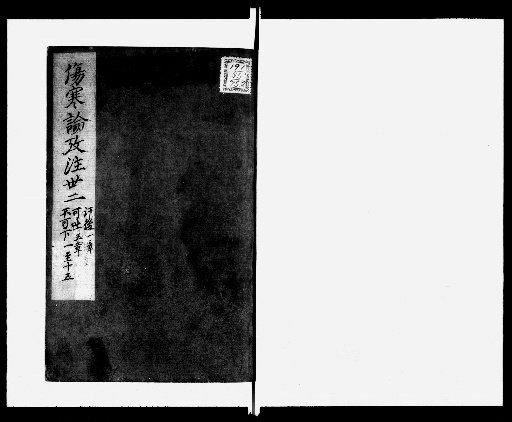 傷寒論攷注 卅二
汗後一章
可吐五章
不可下一至十五
191